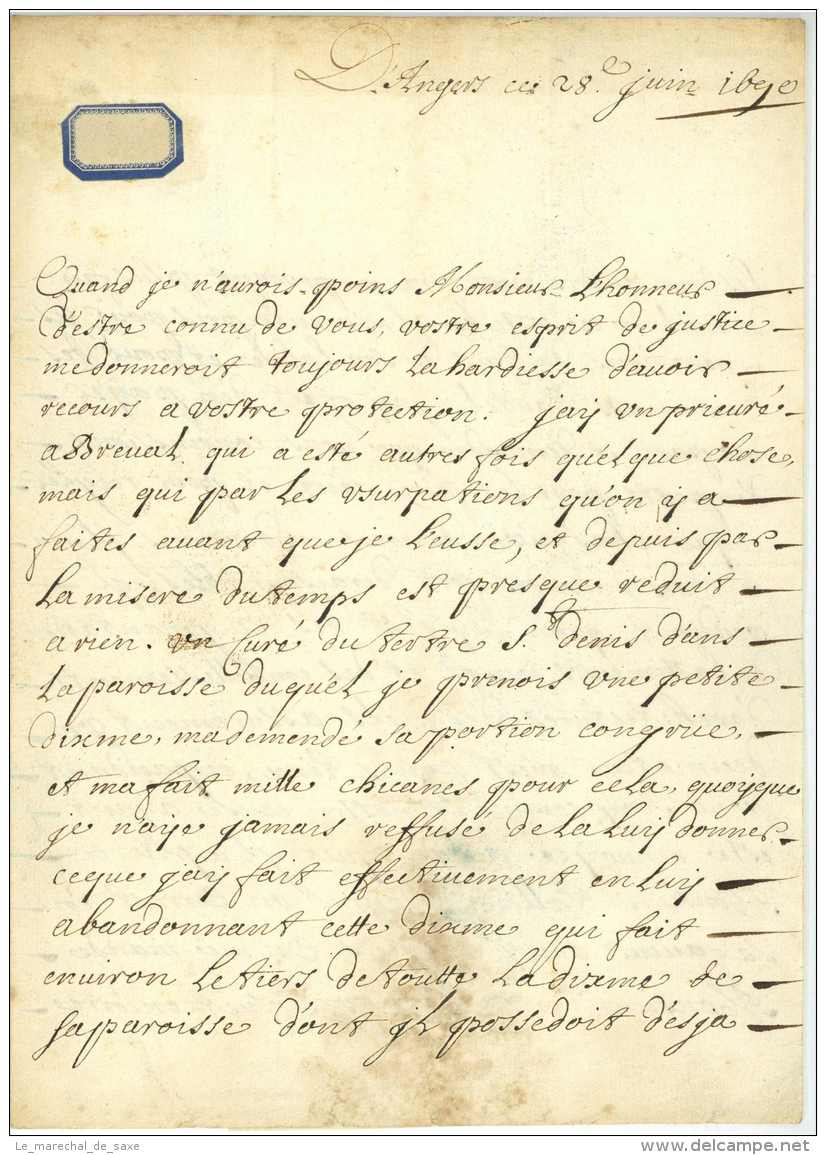 D'Angers ce 28.e juin 1690
Quand je n'aurois poins Monsieur L'honneur
d'estre connu de vous, vostre esprit de justice
me donneroit toujours la hardiesse d'avoir
recours a vostre protection. jaÿ un prieuré
a Breval qui a esté autres fois quelque chose,
mais qui par les usurpations qu'on ÿ a
faites avant que je l'eusse, et depuis par
La misere du temps est presque reduit
a rien. un Curé du tertre S.t denis d'ans
La paroisse duquel je prenois une petite
dixme, ma demendé sa portion congrüe,
et ma fait mille chicanes pour cela, quoÿque
je n'aÿe jamais reffusé de la luÿ donner
ce que jaÿ fait effectivement en luÿ
abandonnant cette dixme qui fait
environ le tiers de toutte la dixme de
sa paroisse d'ont jl possedoit d'esja
Le_marechal_de_saxe
www.delcampe.net